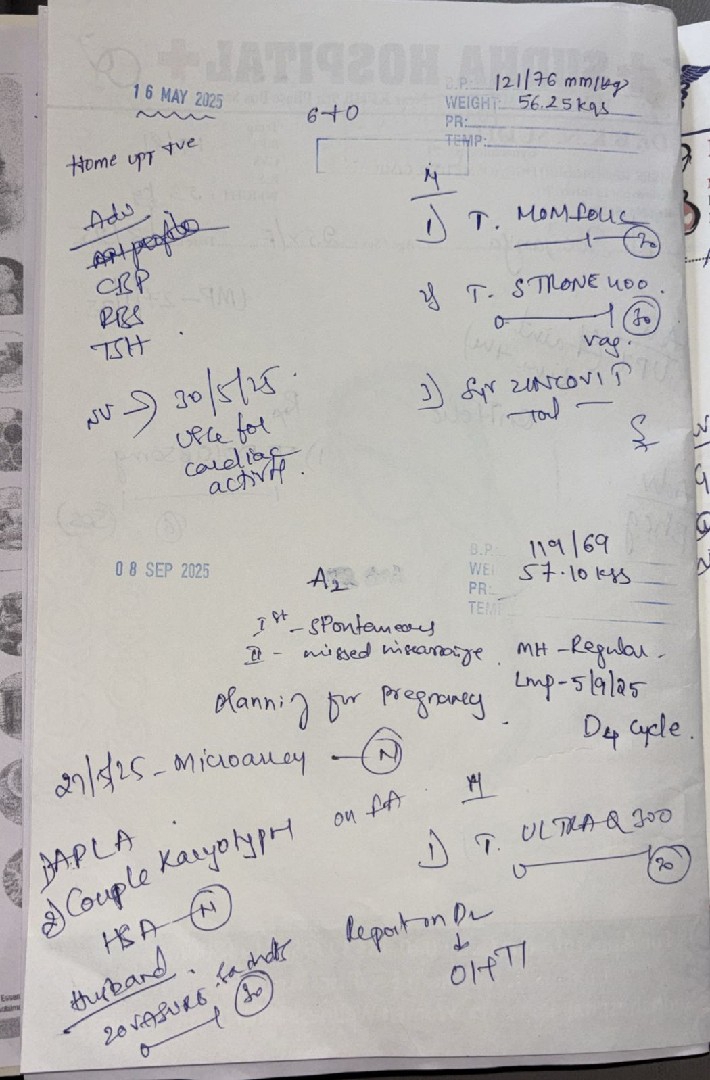 SUDHA HOSPITAL
16 MAY 2025
6+0
B.P.: 121/76 mm/Hg
WEIGHT: 56.25 kgs
PR:
TEMP:
Home upt +ve
Adv
APL profile
CBP
RBS
TSH
NV → 30/5/25.
for
cardiac
activity.
1) T. MOMFOLIC
30
2) T. STRONE 400.
0 30
vag.
3) Syr ZINCOVIT
08 SEP 2025
B.P. 119/69
WEI 57.10 kgs
PR:
TEM
A2
Ist - Spontaneous
II - missed miscarriage.
MH - Regular.
Lmp - 5/9/25
D4 cycle.
Planning for pregnancy.
27/5/25 - Microarray - N
on FA
APLA
2) Couple Karyotype
HSA - N
Husband.
sachets
0 30
1) T. ULTRA Q 300
0 30
Report on D2
↓
OI+TI